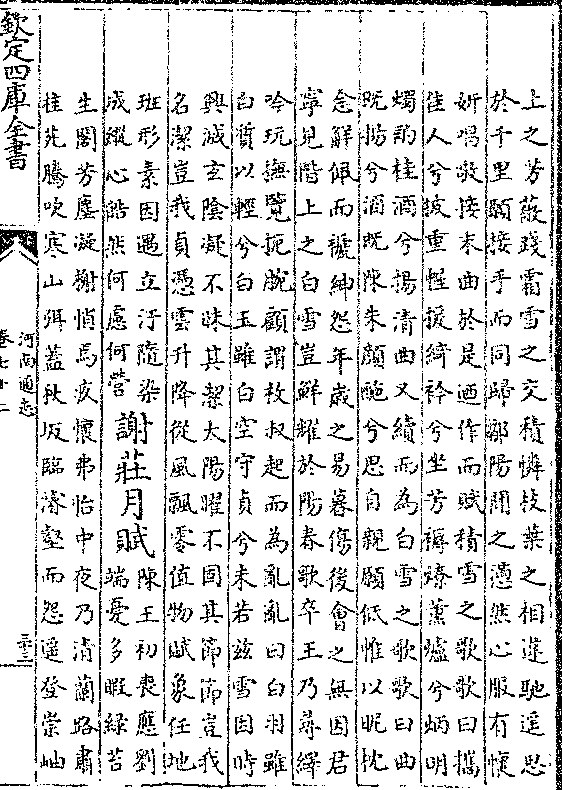 上之芳薇踐霜雪之交積憐枝葉之相違馳遥思
於千里願接手而同歸鄒陽聞之懣然心服有懷
妍唱敬接末曲於是迺作而賦積雪之歌歌曰攜
佳人兮披重幄援綺衾兮坐芳褥燎薰爐兮炳明
燭酌桂酒兮揚清曲又續而為白雪之歌歌曰曲
既揚兮酒既陳朱顔酡兮思自親願低帷以昵枕
念解佩而褫紳怨年歲之易暮傷後會之無因君
寧見階上之白雪豈鮮耀於陽春歌卒王乃尋繹
吟玩撫覽扼腕顧謂枚叔起而為亂亂曰白羽雖
白質以輕兮白玉雖白空守貞兮未若兹雪因時
興滅玄陰凝不昧其潔太陽曜不固其節節豈我
名潔豈我貞憑雲升降從風飄零值物賦象任地
班形素因遇立汙隨染
成蹤心皓然何慮何營
謝莊月賦
陳王初喪應劉
端憂多暇緑苔
生閣芳塵凝榭悄焉疚懷弗怡中夜乃清蘭路肅
桂苑騰吹寒山弭蓋秋坂臨濬壑而怨遥登崇岫
欽定四庫全書
河南通志
卷七十二
三十二